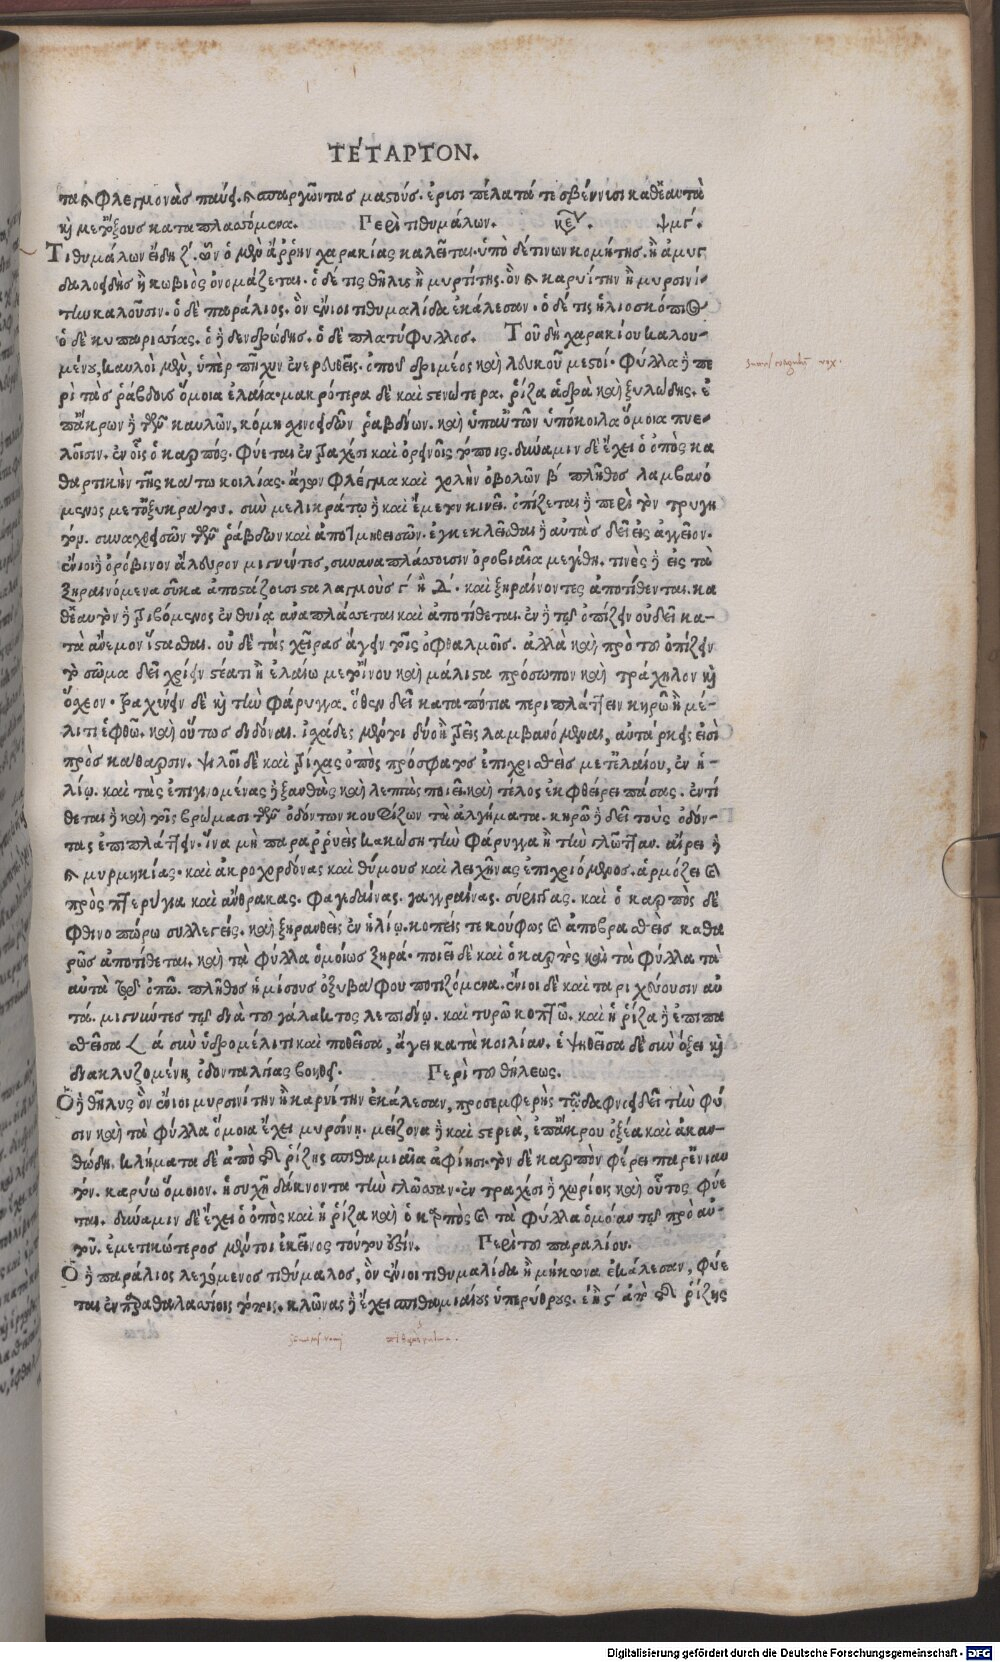 ΤΕΤΑΡΤΟΝ.
τα καὶ φλεγμονὰς παύει. καὶ σπαργῶντας μαστούς. ἐρυσιπέλατά τε σβέννυσι καθ' ἑαυτὰ
καὶ μετ' ὄξους καταπλασσόμενα. Περὶ τιθυμάλων. κεφ. ψμϛ΄.
Τιθυμάλων εἴδη ζ΄. ὧν ὁ μὲν ἄρρην χαρακίας καλεῖται. ὑπὸ δέ τινων κομήτης. ἢ ἀμυγ
δαλοειδὴς ἢ κωβιὸς ὀνομάζεται. ὁ δέ τις θῆλυς ἢ μυρτίτης. ὃν καὶ καρυίτην ἢ μυρσινί-
την καλοῦσιν. ὁ δὲ παράλιος. ὃν ἔνιοι τιθυμαλίδα ἐκάλεσαν. ὁ δέ τις ἡλιοσκόπιος
ὁ δὲ κυπαρισσίας. ὁ δὲ δενδρώδης. ὁ δὲ πλατύφυλλος. Τοῦ δὴ χαρακίου καλου-
μένου, καυλοὶ μὲν, ὑπὲρ πῆχυν ἐνερυθεῖς. ὀποῦ δριμέος καὶ λευκοῦ μεστοί. φύλλα δὲ πε
ρὶ τὰς ῥάβδους ὅμοια ἐλαία. μακρότερα δὲ καὶ στενώτερα. ῥίζα ἁδρὰ καὶ ξυλώδης. ἐ
π' ἄκρων δὲ τῶν καυλῶν, κόμη σχοινοειδῶν ῥαβδίων. καὶ ὑπ' αὐτῶν ὑπόκοιλα ὅμοια πυε-
λοῖσιν. ἐν οἷς ὁ καρπός. φύεται ἐν τραχέσι καὶ ὀρεινοῖς τόποις. δύναμιν δὲ ἔχει ὁ ὀπὸς κα
θαρτικὴν τῆς κάτω κοιλίας. ἄγων φλέγμα καὶ χολὴν ὀβολῶν β΄ πλῆθος λαμβανό
μενος μετ' ὀξυκράτου. σὺν μελικράτῳ δὲ καὶ ἔμετον κινεῖ. ὀπίζεται δὲ περὶ τὸν τρυγη
τόν. συναχθεισῶν τῶν ῥάβδων καὶ ἀποτμηθεισῶν. ἐγκεκλεῖσθαι δὲ αὐτὰς δεῖ εἰς ἀγγεῖον.
ἔνιοι δὲ ὀρόβινον ἄλευρον μιγνύντες, συναναπλάσσουσιν ὀροβιαῖα μεγέθη. τινὲς δὲ εἰς τὰ
ξηραινόμενα σῦκα ἀποστάζουσι σταλαγμοὺς γ΄ ἢ δ΄. καὶ ξηραίνοντες ἀποτίθενται. κα
θ' ἑαυτὸν δὲ τριβόμενος ἐν θυίᾳ ἀναπλάσσεται καὶ ἀποτίθεται. ἐν δὲ τῷ ὀπίζειν οὐ δεῖ κα-
τὰ ἄνεμον ἵστασθαι. οὐδὲ τὰς χεῖρας ἄγειν τοῖς ὀφθαλμοῖς. ἀλλὰ καὶ πρὸ τοῦ ὀπίζειν
τὸ σῶμα δεῖ χρίειν στέατι ἢ ἐλαίω μετ' οἴνου καὶ μάλιστα πρόσωπον καὶ τράχηλον καὶ
ὄσχεον. τραχύνειν δὲ καὶ τὴν φάρυγγα. ὅθεν δεῖ καταπότια περιπλάττειν κηρῶ ἢ μέ-
λιτι ἑφθῶ. καὶ οὕτως διδόναι. ἰσχάδες μέντοι δύο ἢ τρεῖς λαμβανόμεναι, αὐτάρκεις εἰσὶ
πρὸς κάθαρσιν. ψιλοῖ δὲ καὶ τρίχας ὁ ὀπὸς πρόσφατος ἐπιχρισθεὶς μετ' ἐλαίου, ἐν ἡ-
λίῳ. καὶ τὰς ἐπιγινομένας δὲ ξανθὰς καὶ λεπτὰς ποιεῖ. καὶ τέλος ἐκφθείρει πάσας. ἐντί
θεται δὲ καὶ τοῖς βρώμασι τῶν ὀδόντων κουφίζων τὰ ἀλγήματα. κηρῶ δὲ δεῖ τοὺς ὀδόν-
τας ἐπιπλάττειν. ἵνα μὴ παραρρυεὶς κακώση τὴν φάρυγγα ἢ τὴν γλῶτταν. αἴρει δὲ
καὶ μυρμηκίας. καὶ ἀκροχορδόνας καὶ θύμους καὶ λειχῆνας ἐπιχριόμενος. ἁρμόζει καὶ
πρὸς πτερύγια καὶ ἄνθρακας. φαγεδαίνας. γαγγραίνας. σύριγγας. καὶ ὁ καρπὸς δὲ
φθινοπώρω συλλεγείς. καὶ ξηρανθεὶς ἐν ἡλίῳ. κοπείς τε κούφως καὶ ἀποβρασθεὶς καθα
ρῶς ἀποτίθεται. καὶ τὰ φύλλα ὁμοίως ξηρά. ποιεῖ δὲ καὶ ὁ καρπὸς καὶ τὰ φύλλα τὰ
αὐτὰ τῷ ὀπῶ. πλῆθος ἡμίσους ὀξυβάφου ποτιζόμενα. ἔνιοι δὲ καὶ ταριχεύουσιν αὐ
τά. μιγνύντες τῷ διὰ τοῦ γάλακτος λεπιδίῳ. καὶ τυρῶ κοπτῶ. καὶ ἡ ῥίζα δὲ ἐπιπα
σθεῖσα &lt; ά σὺν ὑδρομέλιτι καὶ ποθεῖσα, ἄγει κατὰ κοιλίαν. ἑψηθεῖσα δὲ σὺν ὄξει καὶ
διακλυζομένη, ὀδονταλγίας βοηθεῖ. Περὶ τοῦ θήλεως.
Ὁ δὲ θῆλυς ὃν ἔνιοι μυρσινίτην ἢ καρυίτην ἐκάλεσαν, προσεμφερὴς τῷ δαφνοειδεῖ τὴν φύ
σιν καὶ τὰ φύλλα ὅμοια ἔχει μυρσίνῃ. μείζονα δὲ καὶ στερεὰ, ἐπ' ἄκρου ὀξέα καὶ ἀκαν-
θώδη. κλήματα δὲ ἀπὸ τῆς ῥίζης σπιθαμιαῖα ἀφίησι. τὸν δὲ καρπὸν φέρει παρ' ἐνιαυ
τόν. καρύω ὅμοιον. ἡσυχῆ δάκνοντα τὴν γλῶσσαν. ἐν τραχέσι δὲ χωρίοις καὶ οὗτος φύε
ται. δύναμιν δὲ ἔχει ὁ ὀπὸς καὶ ἡ ῥίζα καὶ ὁ καρπὸς καὶ τὰ φύλλα ὁμοίαν τῷ πρὸ αὐ-
τοῦ. ἐμετικώτερος μέντοι ἐκεῖνος τούτου ἐστίν. Περὶ τοῦ παραλίου.
Ὁ δὲ παράλιος λεγόμενος τιθύμαλος, ὃν ἔνιοι τιθυμαλίδα ἢ μήκωνα ἐκάλεσαν, φύε
ται ἐν παραθαλασσίοις τόποις. κλῶνας δὲ ἔχει σπιθαμιαίους ὑπερύθρους. ε΄ ἢ ϛ΄ ἀπὸ τῆς ῥίζης
Digitalisierung gefördert durch die Deutsche Forschungsgemeinschaft - DFG